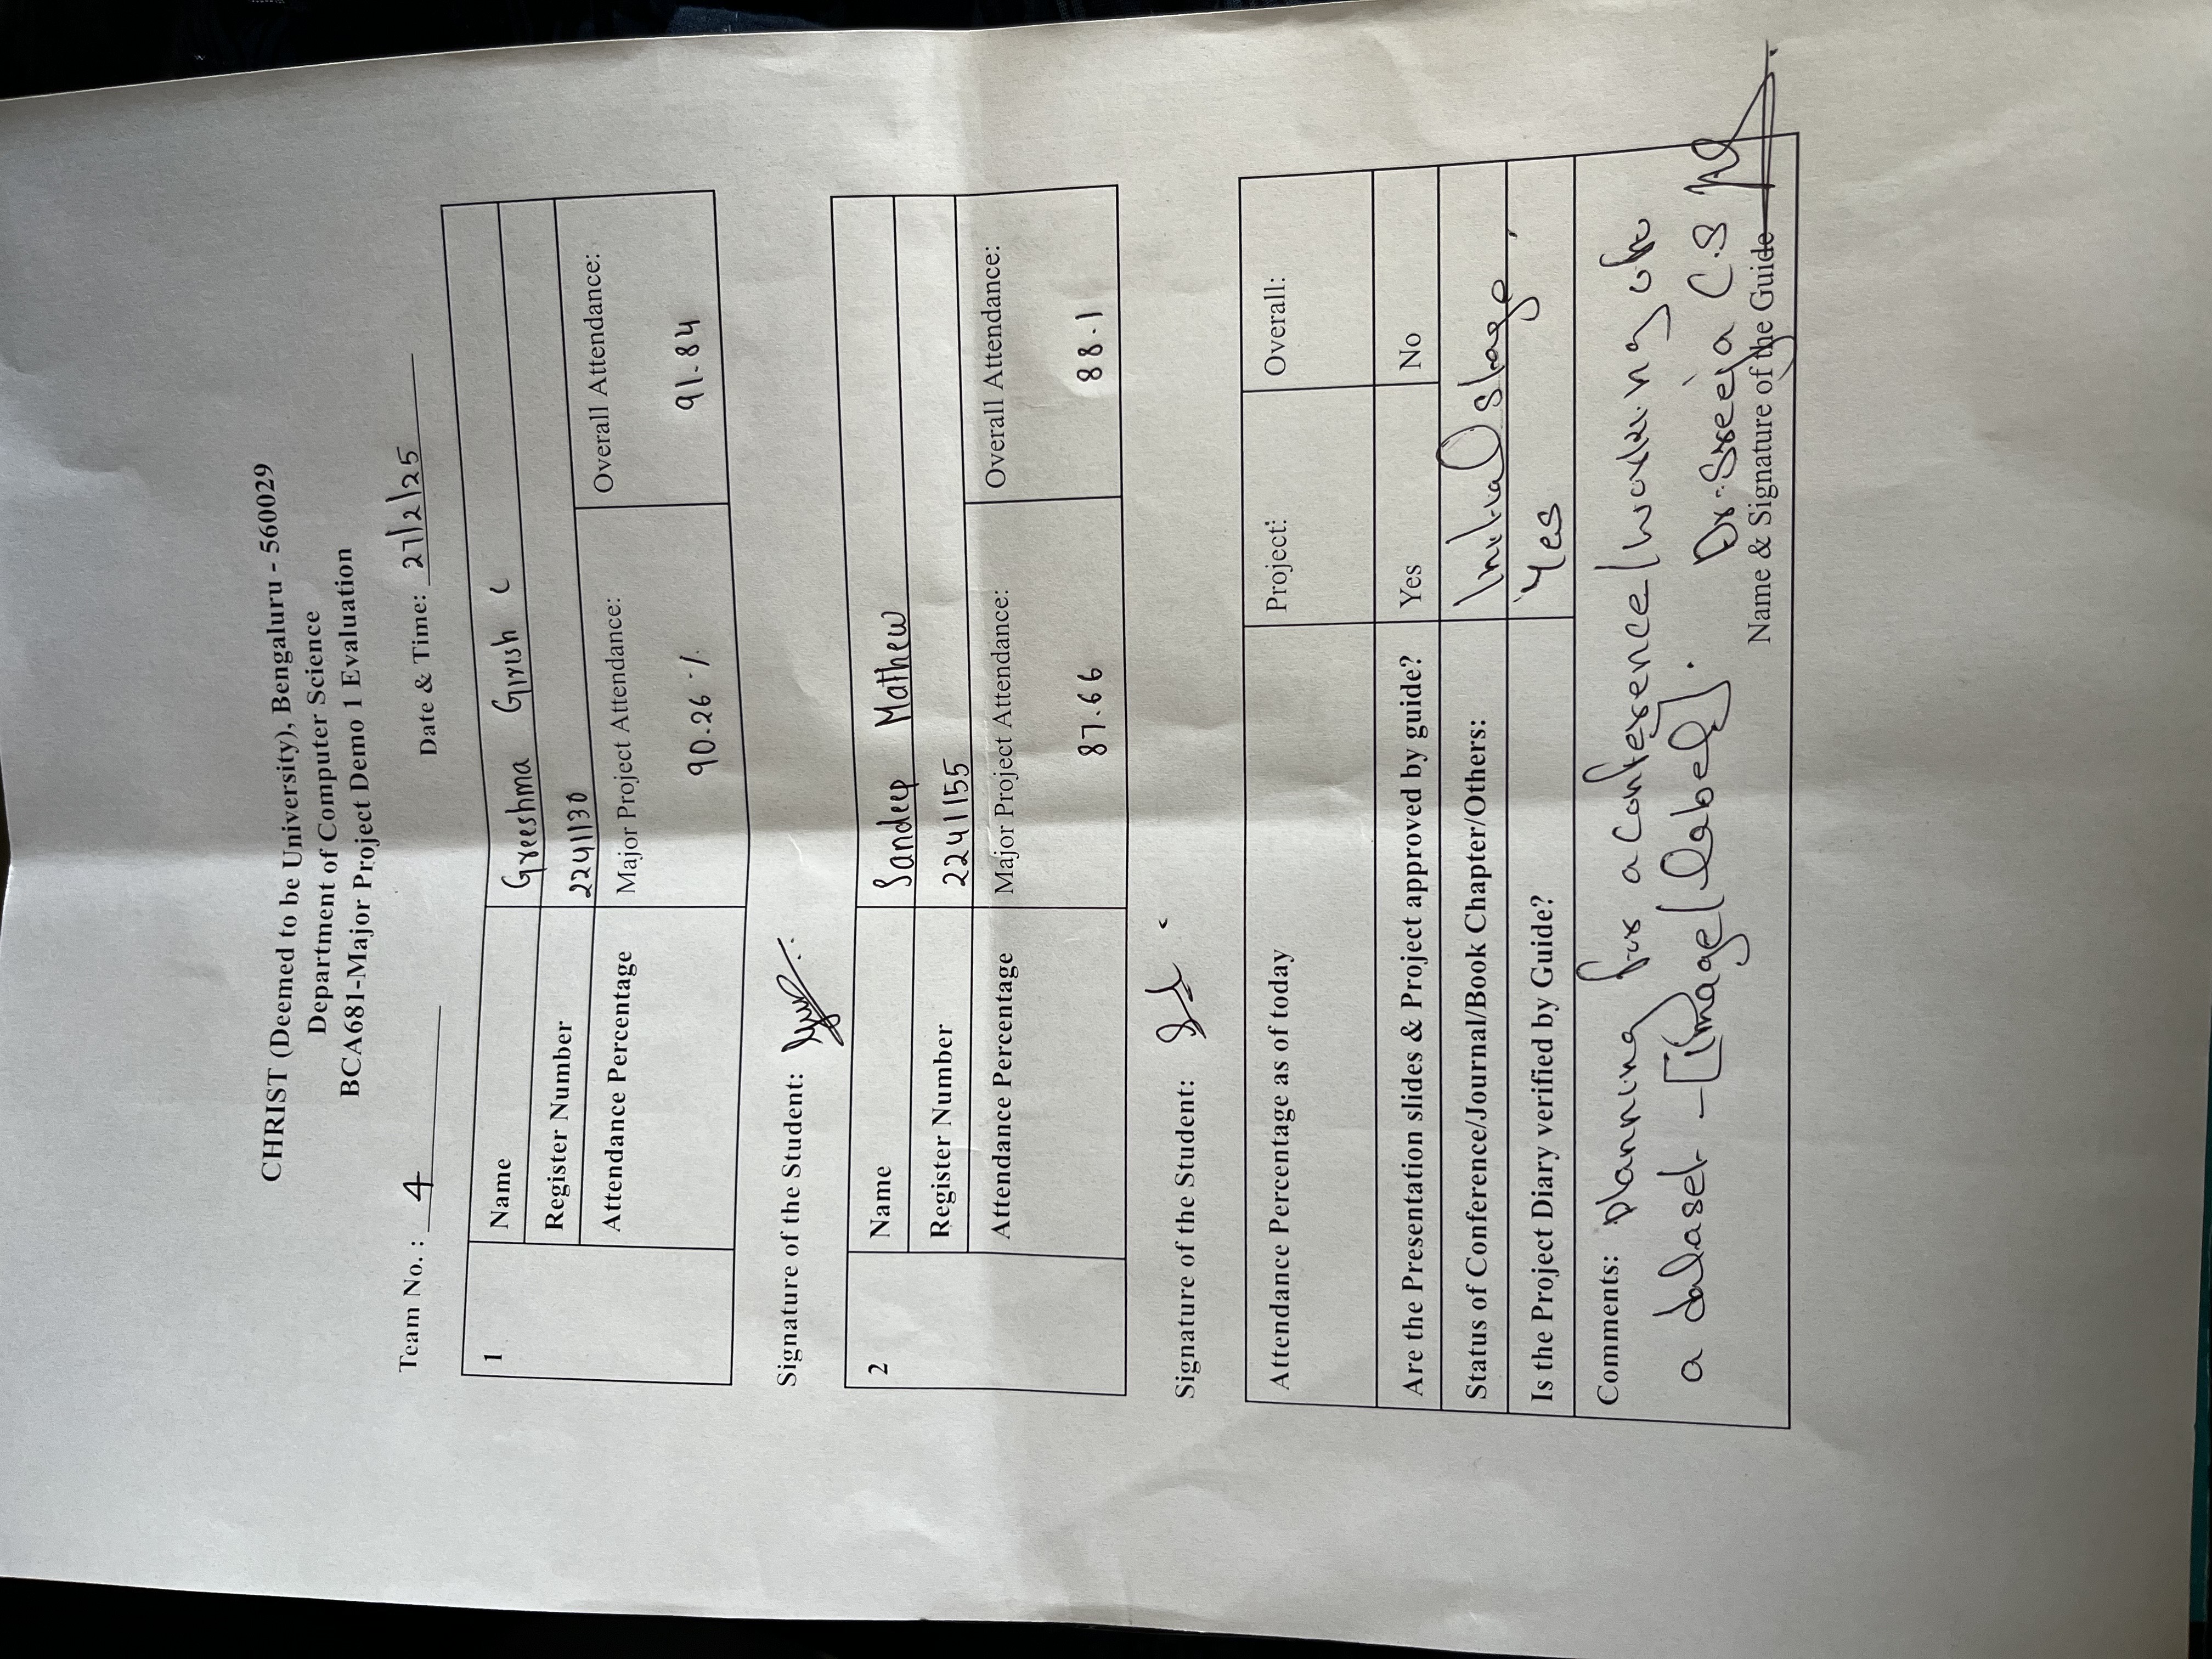 CHRIST (Deemed to be University), Bengaluru - 560029
Department of Computer Science
BCA681-Major Project Demo 1 Evaluation
Team No. : 4 Date & Time: 27/2/25
1 Name Greeshma Girish C
Register Number 2241130
Attendance Percentage Major Project Attendance: Overall Attendance:
90.26 % 91.84
Signature of the Student:
2 Name Sandeep Mathew
Register Number 2241155
Attendance Percentage Major Project Attendance: Overall Attendance:
87.66 88.1
Signature of the Student:
Attendance Percentage as of today Project: Overall:
Are the Presentation slides & Project approved by guide? Yes No
Status of Conference/Journal/Book Chapter/Others: Initial stage
Is the Project Diary verified by Guide? Yes
Comments: Planning for a conference/working
a dataset - [image/label].
Dr. Sreeja C.S
Name & Signature of the Guide